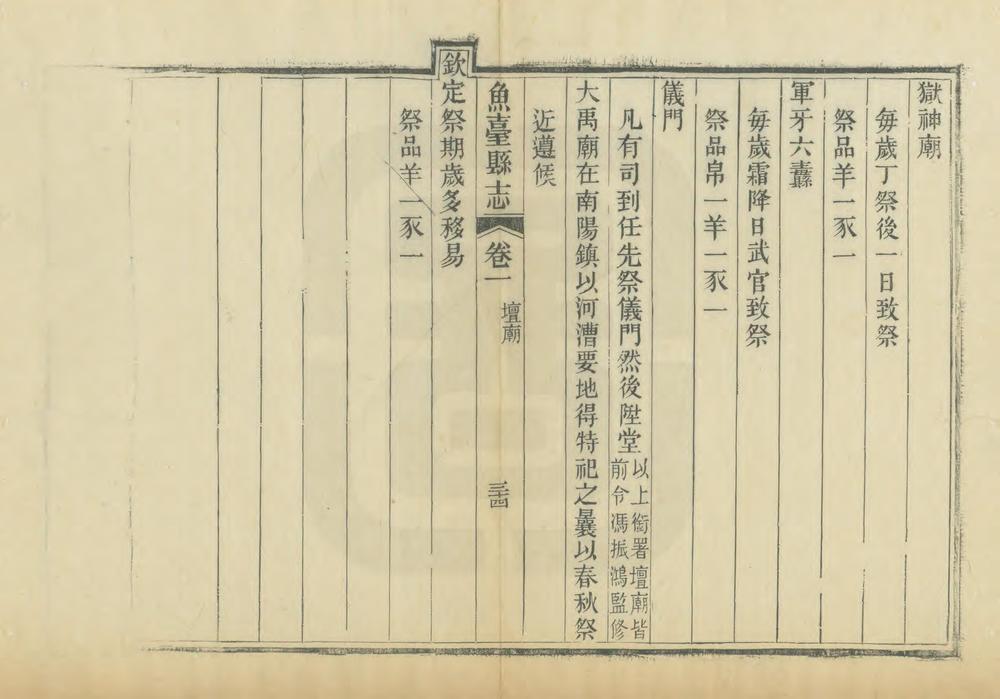 獄神廟
每歲丁祭後一日致祭
祭品羊一豕一
軍牙六纛
每歲霜降日武官致祭
祭品帛一羊一豕一
儀門
凡有司到任先祭儀門然後陞堂以上衙署壇廟皆
前令馮振鴻監修
大禹廟在南陽鎮以河漕要地得特祀之曩以春秋祭
近遵候
魚臺縣志 卷一 壇廟 三十四
欽定祭期歲多移易
祭品羊一豕一